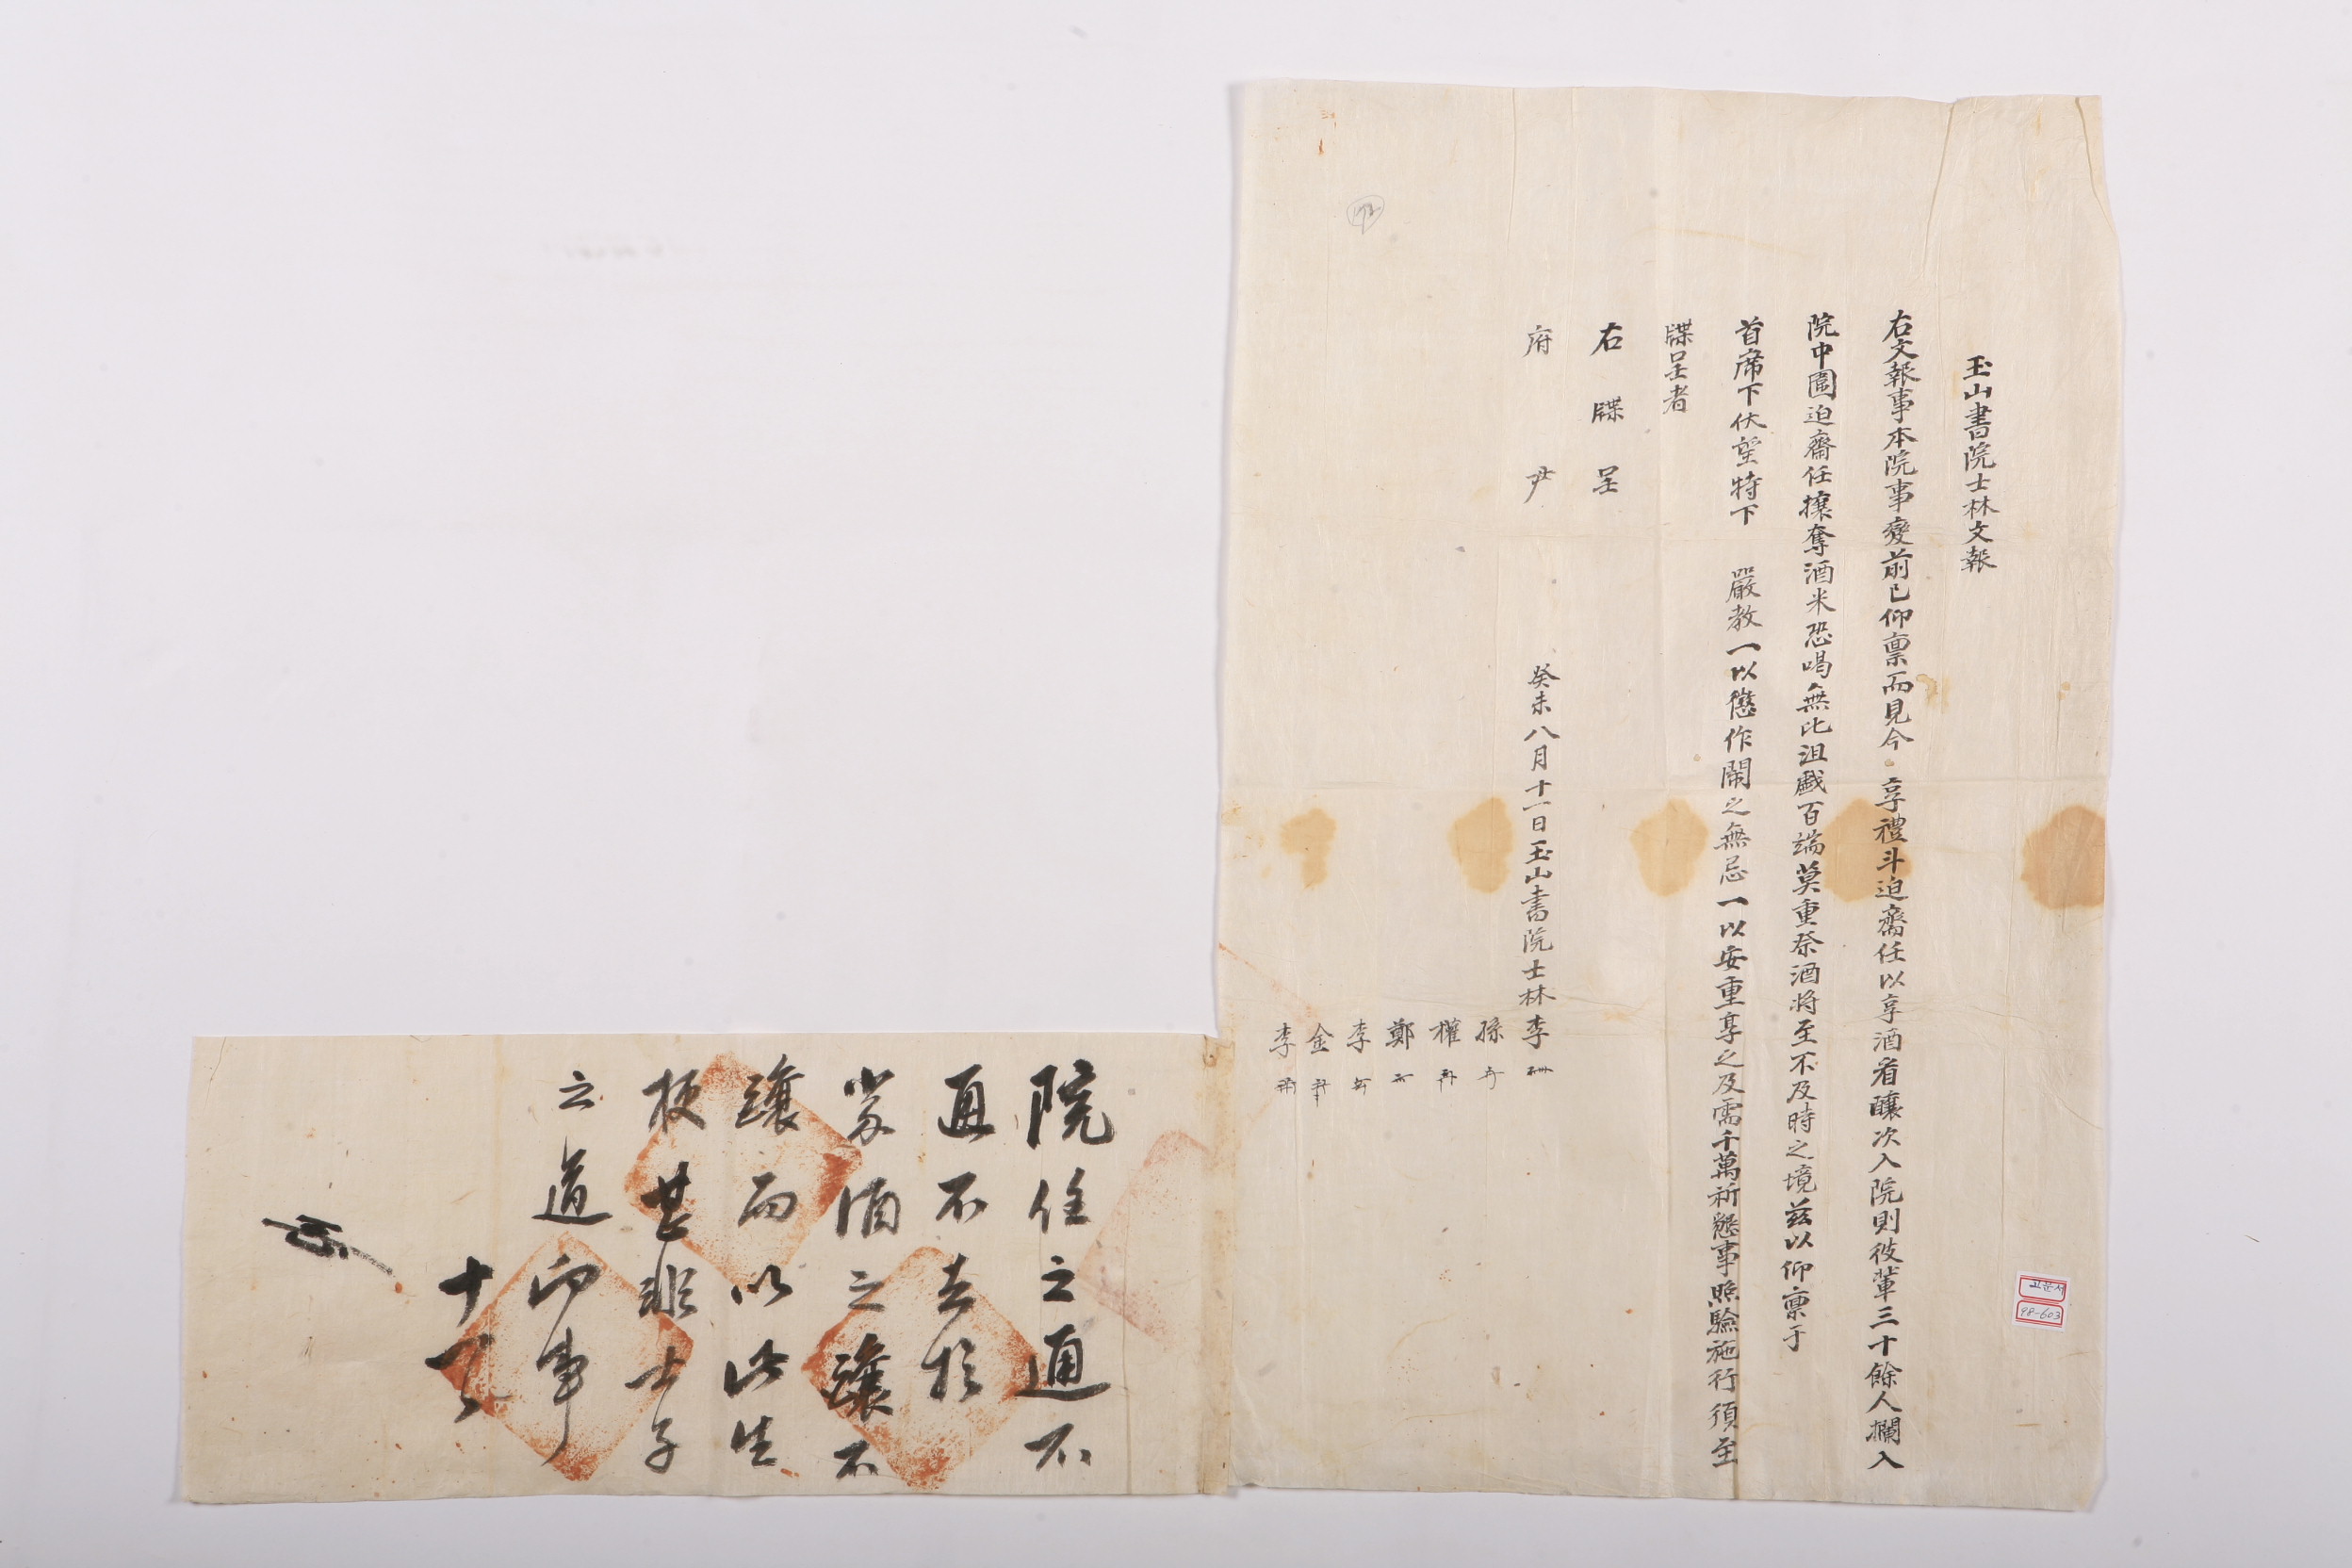 玉山書院士林文報
右文報事本院事變前已仰稟而見今 享禮斗迫齋任以享酒看釀次入院則彼輩三十餘人攔入
院中圍迫齋任攘奪酒米恐喝無比沮戱百端莫重祭酒將至不及時之境玆以仰稟于
首席下伏望特下 嚴敎一以懲作鬧之無忌一以安重享之及需千萬祈懇事照驗施行須至
牒呈者
右牒呈
府尹
癸未八月十一日玉山書院士林李
孫
權
鄭
李
金
李
院任之遞不
遞不去於
酒之釀不
釀而以此生
梗甚非士子
之道向事
十一
고문서
98-603